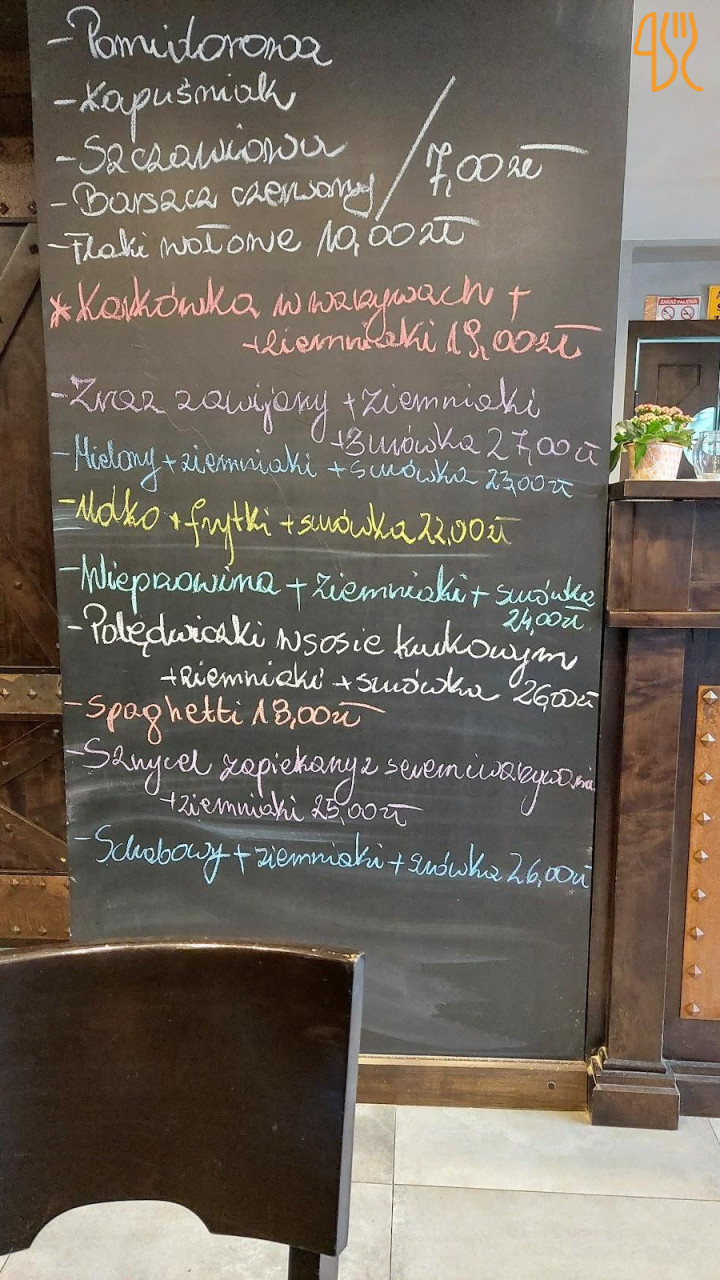 - Pomidorowa
- Kapuśniak
- Szczawiowa
- Barszcz czerwony / 7,00zł
- Flaki wołowe 10,00zł
* Karkówka w warzywach +
+ziemniaki 19,00zł
- Zraz zawijany + ziemniaki
+surówka 27,00zł
- Mielony + ziemniaki + surówka 23,00zł
- Udko + frytki + surówka 22,00zł
- Wieprzowina + ziemniaki + surówka
24,00zł
- Polędwiczki w sosie kurkowym
+ziemniaki + surówka 26,00zł
- Spaghetti 18,00zł
- Sznycel zapiekany z serem i warzywami
+ziemniaki 25,00zł
- Schabowy + ziemniaki + surówka 26,00zł
ZAKAZ PALENIA